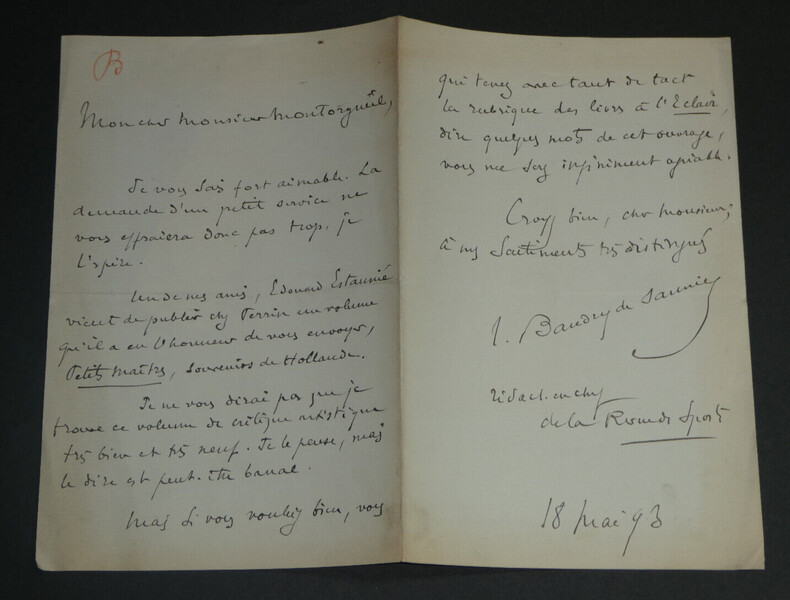 B
Mon cher Monsieur Montorgueil,
Je vous sais fort aimable. La
demande d'un petit service ne
vous effraiera donc pas trop, je
l'espère.
Un de mes amis, Edouard Estaunié
vient de publier chez Perrin un volume
qu'il a eu l'honneur de vous envoyer,
Petits Maîtres, souvenirs de Hollande.
Je ne vous dirai pas que je
trouve ce volume de critique artistique
très bien et très neuf. Je le pense, mais
le dire est peut-être banal.
Mais si vous vouliez bien, vous
qui tenez avec tant de tact
la rubrique des livres à l'Eclair,
dire quelques mots de cet ouvrage,
vous me serez infiniment agréable.
Croyez bien, cher Monsieur,
à mes sentiments très distingués
L. Baudry de Saunier
rédact. en chef
de la Revue des Sports
18 mai 93